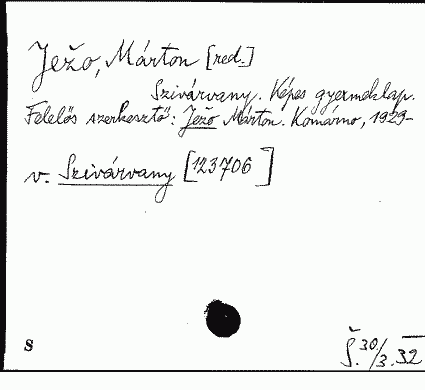 Ježo, Márton [red.]
Szivárvany. Képes gyermeklap.
Felelős szerkesztő: Ježo Márton. Komárno, 1929-
v. Szivárvany [123706]
S
Š. 30/3. 32